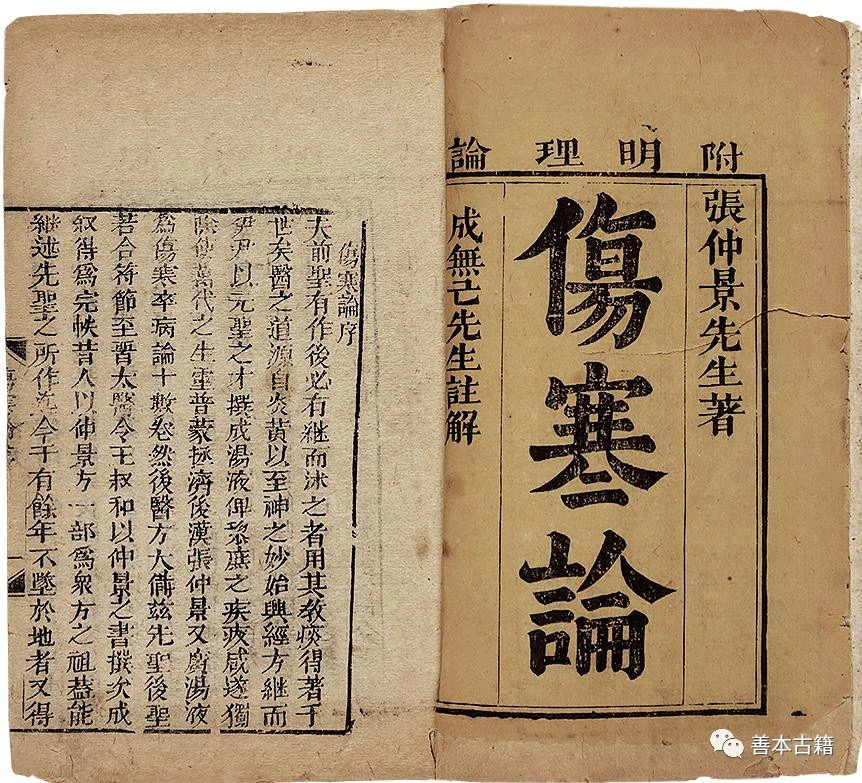 附明理論
張仲景先生著
傷寒論
成無己先生註解
傷寒論序
夫前聖有作後必有継而述之者用其教得著于
世矣醫之道源自炎黃以至神之妙始興經方継而
伊尹以元聖之才撰成湯液俾黎庶之疾疚咸遂
除使萬代之生靈普蒙拯濟後漢張仲景又廣湯液
為傷寒卒病論十數卷然後醫方大備茲先聖後聖
若合符節至晋太醫令王叔和以仲景之書撰次成
叙得爲完帙昔人以仲景方一部爲衆方之祖蓋能
継述先聖之所作迄今千有餘年不墜於地者又得
善本古籍